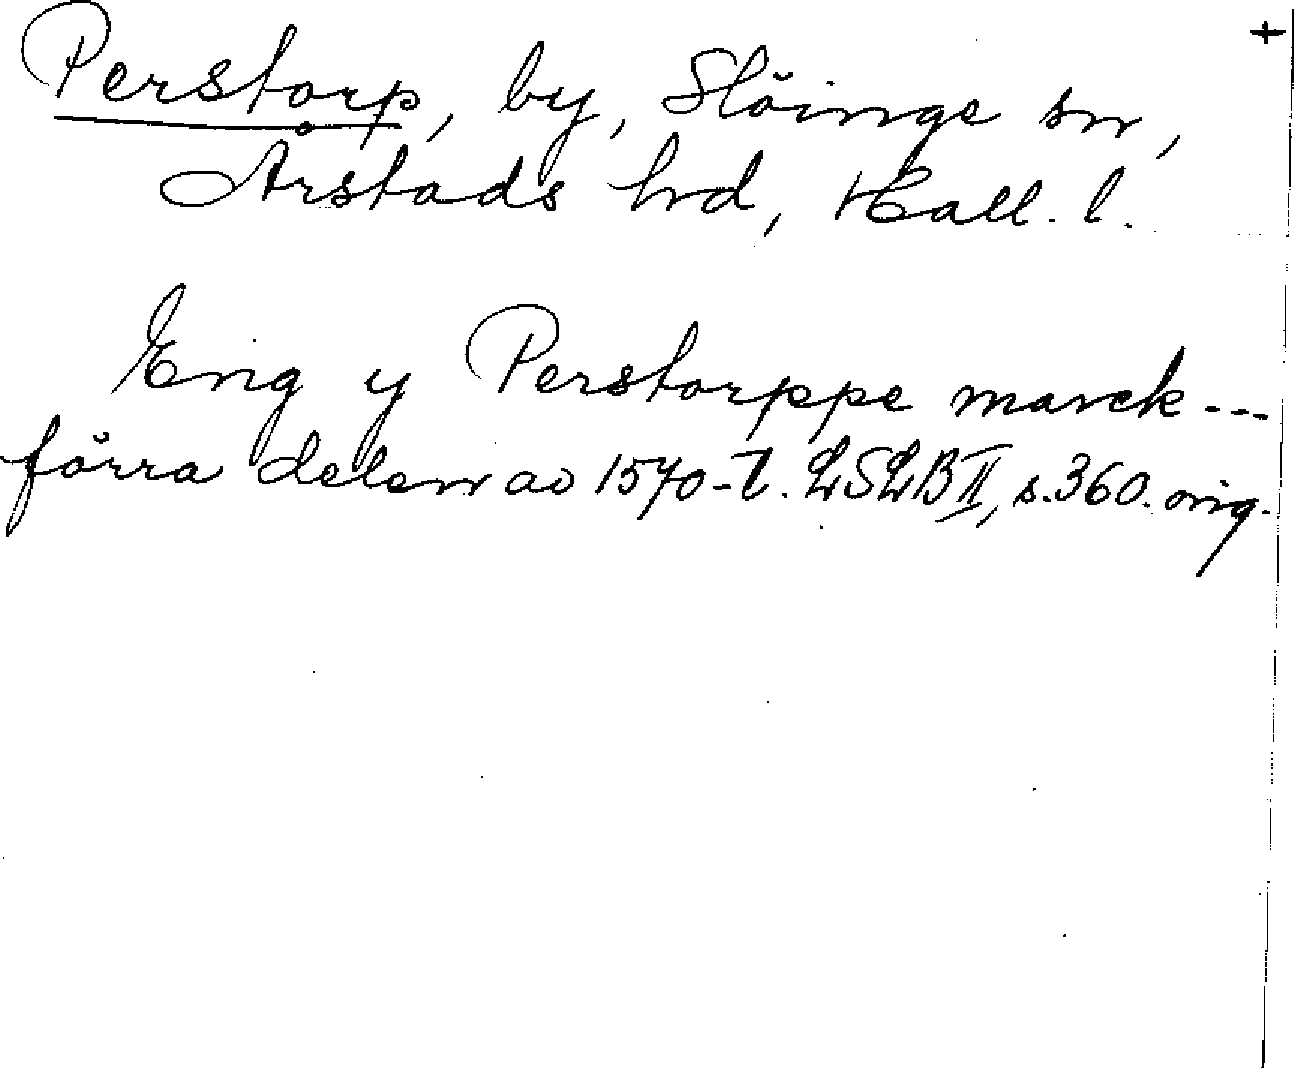 +
Perstorp, by, Slöinge sn,
Årstads hd, Hall. l.
Eng y Perstorppe marck ---
förra delen av 1570-t. LSLB II, s. 360. orig.